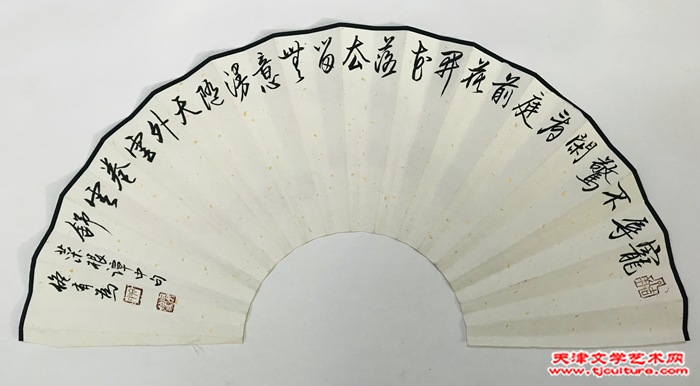 寵辱不驚閑看庭前花開花落去留無意漫隨天外雲卷雲舒
菜根譚中句
天津文学艺术网
www.tjculture.com